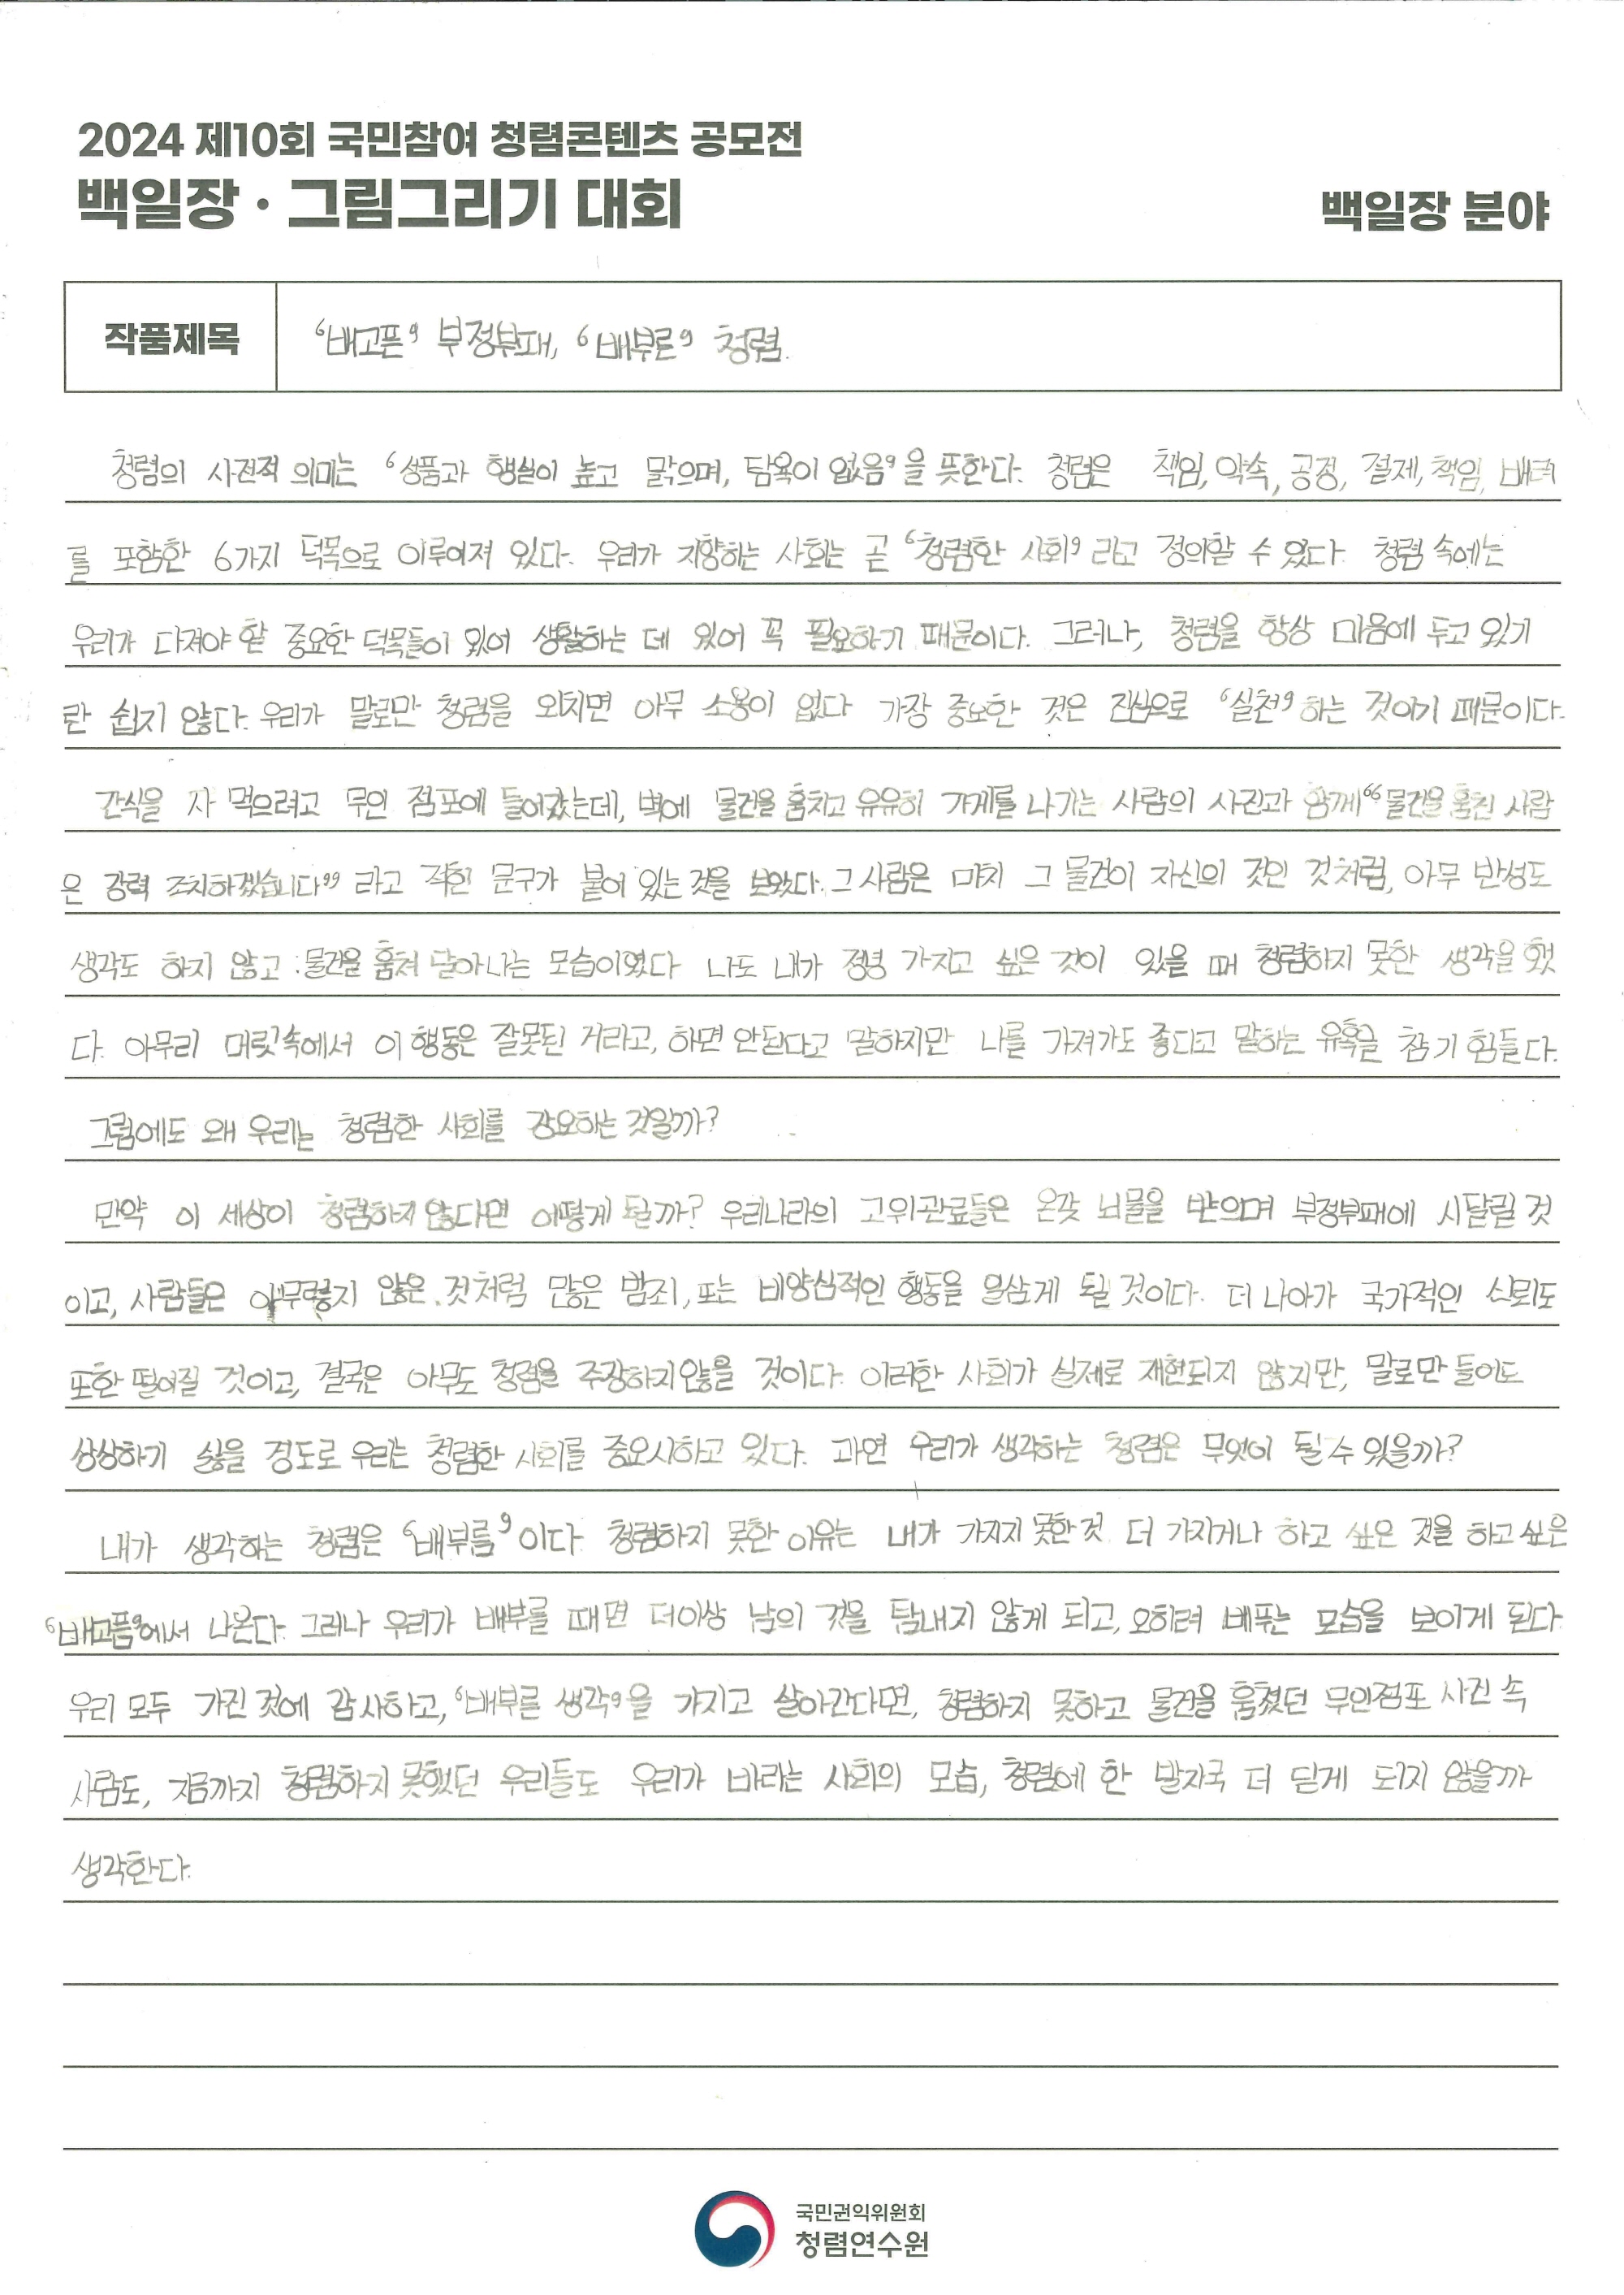 2024 제10회 국민참여 청렴콘텐츠 공모전
백일장·그림그리기 대회
백일장 분야
작품제목
‘배고픈’ 부정부패, ‘배부른’ 청렴.
청렴의 사전적 의미는 ‘성품과 행실이 높고 맑으며, 탐욕이 없음’을 뜻한다. 청렴은 책임, 약속, 공정, 절제, 책임, 배려
를 포함한 6가지 덕목으로 이루어져 있다. 우리가 지향하는 사회는 곧 ‘청렴한 사회’ 라고 정의할 수 있다. 청렴 속에는
우리가 다져야 할 중요한 덕목들이 있어 생활하는 데 있어 꼭 필요하기 때문이다. 그러나, 청렴을 항상 마음에 두고 있기
란 쉽지 않다. 우리가 말로만 청렴을 외치면 아무 소용이 없다 가장 중요한 것은 진심으로 ‘실천’하는 것이기 때문이다.
간식을 사 먹으려고 무인 점포에 들어갔는데, 벽에 물건을 훔치고 유유히 가게를 나가는 사람의 사진과 함께 “물건을 훔친 사람
은 강력 조치하겠습니다” 라고 적힌 문구가 붙어 있는 것을 보았다. 그 사람은 마치 그 물건이 자신의 것인 것처럼, 아무 반성도
생각도 하지 않고 물건을 훔쳐 달아나는 모습이였다 나도 내가 정녕 가지고 싶은 것이 있을 때 청렴하지 못한 생각을 했
다. 아무리 머릿속에서 이 행동은 잘못된 거라고, 하면 안된다고 말하지만 나를 가져가도 좋다고 말하는 유혹을 참기 힘들다.
그럼에도 왜 우리는 청렴한 사회를 강요하는 것일까?
만약 이 세상이 청렴하지 않다면 어떻게 될까? 우리나라의 고위관료들은 온갖 뇌물을 받으며 부정부패에 시달릴 것
이고, 사람들은 아무렇지 않은 것처럼 많은 범죄, 또는 비양심적인 행동을 일삼게 될 것이다. 더 나아가 국가적인 신뢰도
또한 떨어질 것이고, 결국은 아무도 청렴을 주장하지 않을 것이다. 이러한 사회가 실제로 재현되지 않지만, 말로만 들어도
상상하기 싫을 정도로 우리는 청렴한 사회를 중요시하고 있다. 과연 우리가 생각하는 청렴은 무엇이 될 수 있을까?
내가 생각하는 청렴은 ‘배부름’이다. 청렴하지 못한 이유는 내가 가지지 못한 것 더 가지거나 하고 싶은 것을 하고 싶은
‘배고픔’에서 나온다. 그러나 우리가 배부를 때면 더이상 남의 것을 탐내지 않게 되고, 오히려 베푸는 모습을 보이게 된다.
우리 모두 가진 것에 감사하고, ‘배부른 생각’을 가지고 살아간다면, 청렴하지 못하고 물건을 훔쳤던 무인점포 사진 속
사람도, 지금까지 청렴하지 못했던 우리들도 우리가 바라는 사회의 모습, 청렴에 한 발자국 더 딛게 되지 않을까
생각한다.
국민권익위원회
청렴연수원